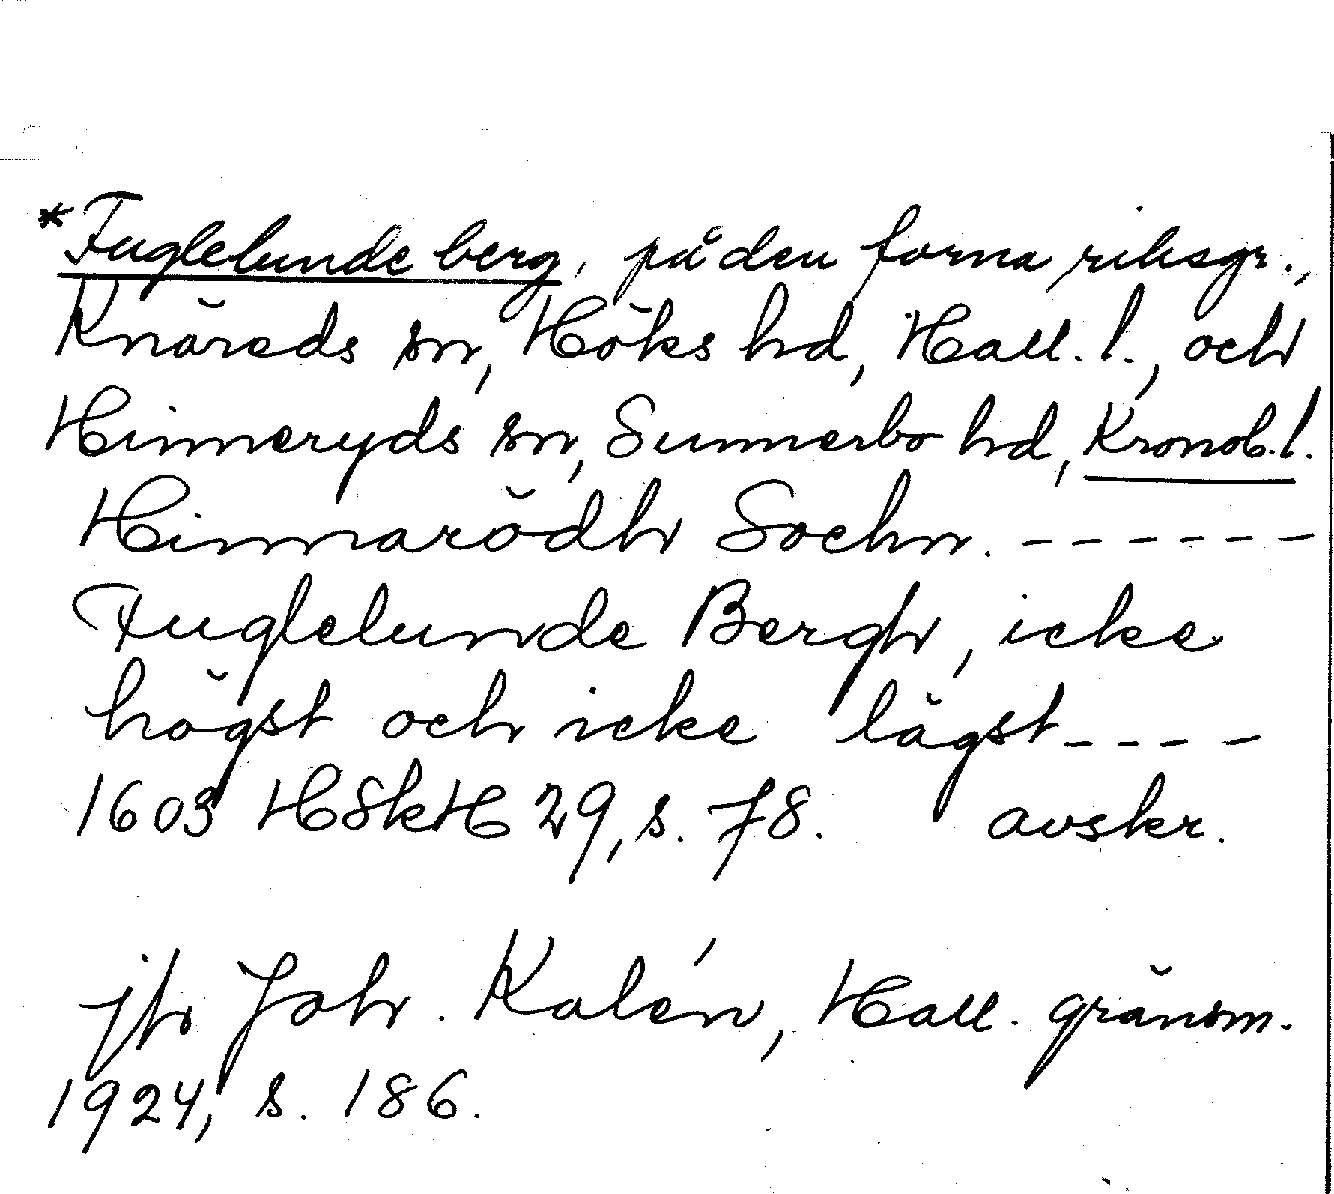 *Fuglelunde berg, på den forna riksgr.,
Knäreds sn, Höks hd, Hall. l., och
Hinneryds sn, Sunnerbo hd, Kronob. l.
Hinnarödh Sochn. - - - - - -
Fuglelunde Bergh, icke
högst och icke lägst - - - -
1603 HSkH 29, s. 78. avskr.
jfr Joh. Kalén, Hall. gränsm.
1924, s. 186.